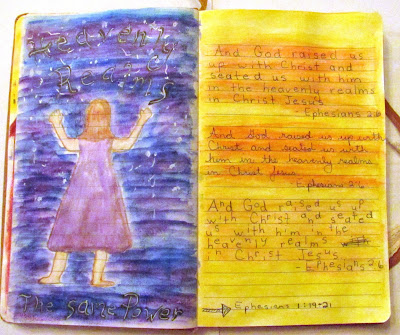 Heavenly
Realms
The same Power
And God raised us
up with Christ and
seated us with him
in the heavenly realms
in Christ Jesus
- Ephesians 2:6
And God raised us up with
Christ and seated us with
him in the heavenly realms
in Christ Jesus
Ephesians 2:6
And God raised us up
with Christ and seated
us with him in the
heavenly realms
in Christ Jesus
- Ephesians 2:6
Ephesians 1:19-21